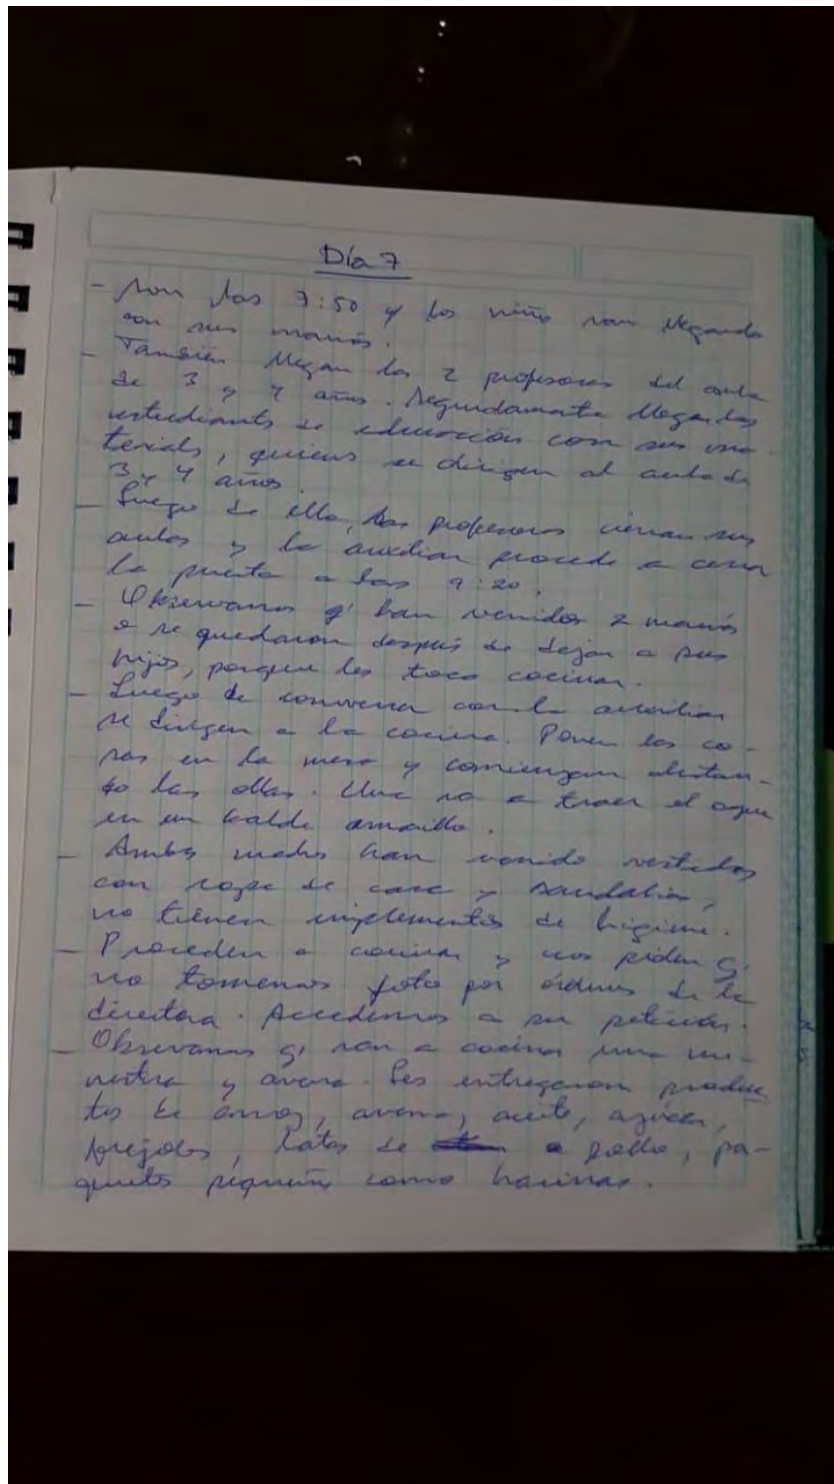 Día 7
- Son las 7:50 y los niños van llegando
con sus mamás.
- También llegan las 2 profesoras del aula
de 3 y 4 años. Seguidamente llegan las
estudiantes de educación con sus ma-
teriales, quienes se dirigen al aula de
3 y 4 años.
- Luego de ello, las profesoras cierran sus
aulas y la auxiliar procede a cerrar
la puerta a las 9:20.
- Observamos q' han venidos 2 mamás
o se quedaron después de dejar a sus
hijos, porque les toca cocinar.
- Luego de conversar con la auxiliar
se dirigen a la cocina. Ponen las co-
sas en la mesa y comienzan alistan-
do las ollas. Una va a traer el agua
en un balde amarillo.
- Ambas madres han venido vestidas
con ropa de casa y sandalias,
no tienen implementos de higiene.
- Proceden a cocinar y nos piden q'
no tomemos foto por órdenes de la
directora. Accedemos a su petición.
- Observamos q' van a cocinar una me-
nestra y avena. Les entregaron produc
tos de arroz, avena, aceite, azúcar,
frejoles, latas de pollo, pa-
quetes pequeños como harinas.